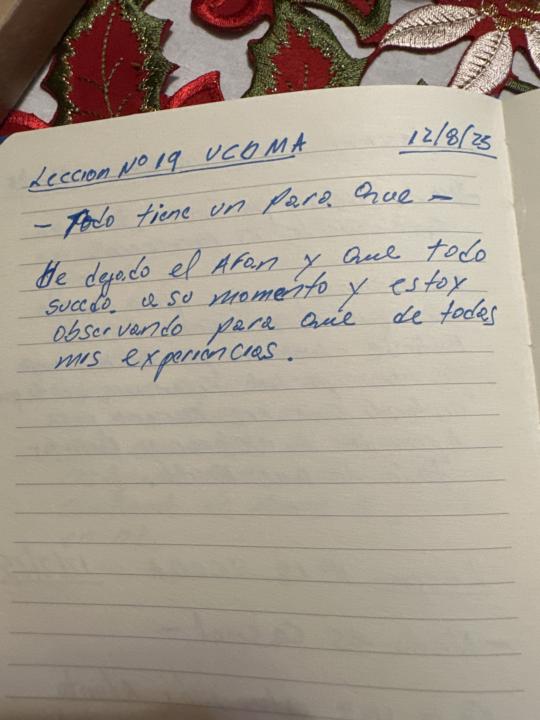 Leccion No 19 UCDMA 12/8/25
- Todo tiene un Para Que -
He dejado el Afan y Que todo
suceda a su momento y estoy
observando para Que de todas
mis experiencias.